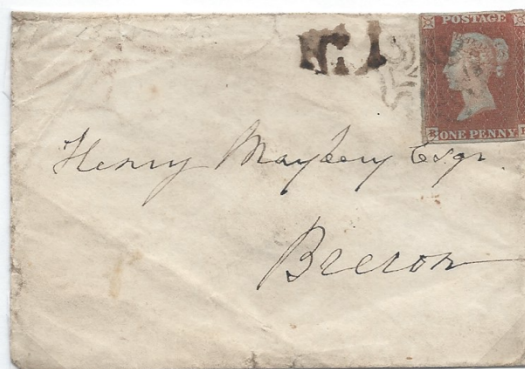 POSTAGE
ONE PENNY
Henry Maybery Esqr.
Brecon